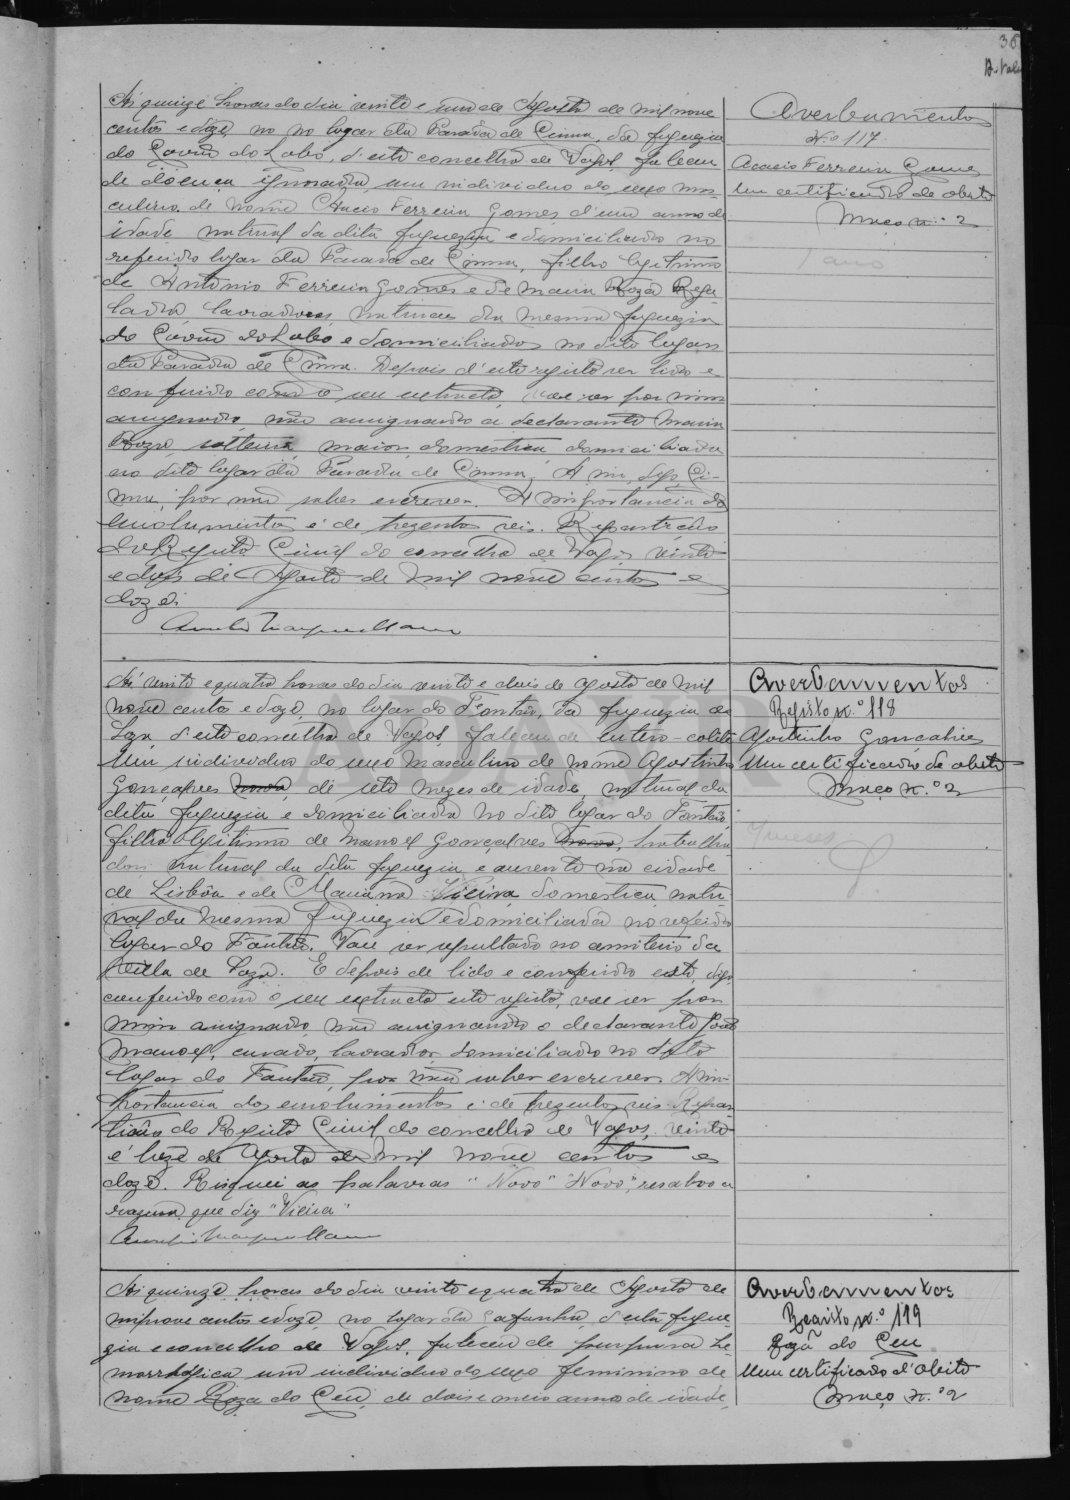 36
A. Vale
Ás quinze horas do dia vinte e um de Agosto de mil nove
centos e doze, no no logar da Parada de Cima, da freguezia
do Covão do Lobo, d'este concelho de Vagos, faleceu
de doença ignorada, um individuo do sexo mas
culino de nome Acacio Ferreira Gomes d'um anno de
idade natural da dita freguezia e domiciliado no
referido logar da Parada de Cima, filho legitimo
de Antonio Ferreira Gomes e de Maria Roza Rega
lada lavradores naturaes da mesma freguezia
do Covão do Lobo e domiciliados no dito logar
da Parada de Cima. Depois d'este registo ser lido e
conferido com o seu extracto, vae ser por mim
assignado, não assignando a declarante Maria
Roza, solteira, maior, domestica, domiciliada
no dito logar da Parada de Cima, digo, Ci-
ma, por não saber escrever. A importancia dos
emolumentos é de trezentos reis. Repartição
do Registo Civil do concelho de Vagos, vinte
e dois de Agosto de mil nove centos e
doze.
Averbamentos
N.º 117
Acacio Ferreira Gomes
Um certificado de obito
Maço n.º 2
1 ano
Ás vinte e quatro horas do dia vinte e dois de Agosto de mil
nove centos e doze, no logar do Fontão, da freguezia de
Soza d'este concelho de Vagos, faleceu de entero-colite
um individuo do sexo masculino de nome Agostinho
Gonçalves Novo, de sete mezes de idade, natural da
dita freguezia e domiciliado no dito logar do Fontão,
filho legitimo de Manoel Gonçalves Novo, trabalha
dor natural da dita freguezia e ausente na cidade
de Lisbôa e de Mariana Vieira, domestica, natu
ral da mesma freguezia e domiciliada no referido
logar do Fontão. Vae ser sepultado no cemiterio da
Villa de Soza. E depois de lido e conferido este digo
conferido com o seu extracto este registo, vae ser por
mim assignado, não assignando o declarante José
Manoel, casado, lavrador, domiciliado no dito
logar do Fontão, por não saber escrever. A im-
portancia dos emolumentos é de trezentos reis. Repar
tição do Registo Civil do concelho de Vagos, vinte
e treze de Agosto de mil nove centos e
doze. Risquei as palavras "Novo" "Novo", resalvo a
rasura que diz "Vieira"
Averbamentos
Registo n.º 118
Agostinho Gonçalves
Um certificado de obito
Maço n.º 2
7 mezes
Ás quinze horas do dia vinte e quatro de Agosto de
mil nove centos e doze, no logar da Gafanha, d'esta fregue
zia e concelho de Vagos, faleceu de purpura he
morrhagica um individuo do sexo feminino de
nome Roza do Ceu, de dois e meio annos de idade,
Averbamentos
Registo n.º 119
Roza do Ceu
Um certificado d'obito
Maço n.º 2